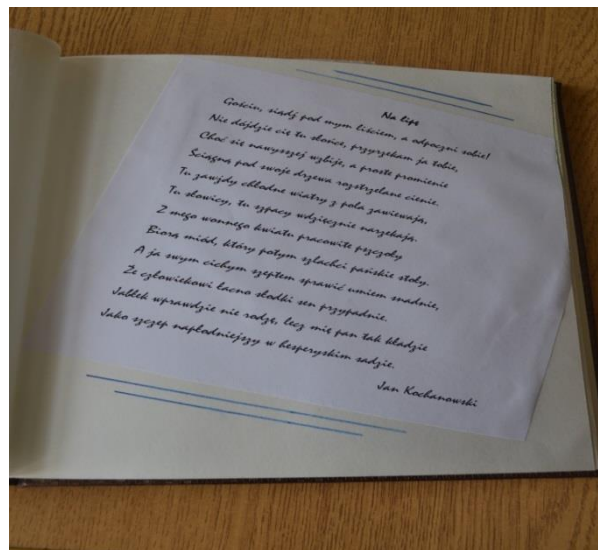 Na lipę
Gościu, siądź pod mym liściem, a odpoczni sobie!
Nie dójdzie cię tu słońce, przyrzekam ja tobie,
Choć się nawyszszej wzbije, a proste promienie
Ściągną pod swoje drzewa rozstrzelane cienie.
Tu zawżdy chłodne wiatry z pola zawiewają,
Tu słowicy, tu szpacy wdzięcznie narzekają.
Z mego wonnego kwiatu pracowite pszczoły
Biorą miód, który potym szlachci pańskie stoły.
A ja swym cichym szeptem sprawić umiem snadnie,
Że człowiekowi łacno słodki sen przypadnie.
Jabłek wprawdzie nie rodzę, lecz mię pan tak kładzie
Jako szczep napłodniejszy w hesperyskim sadzie.
Jan Kochanowski